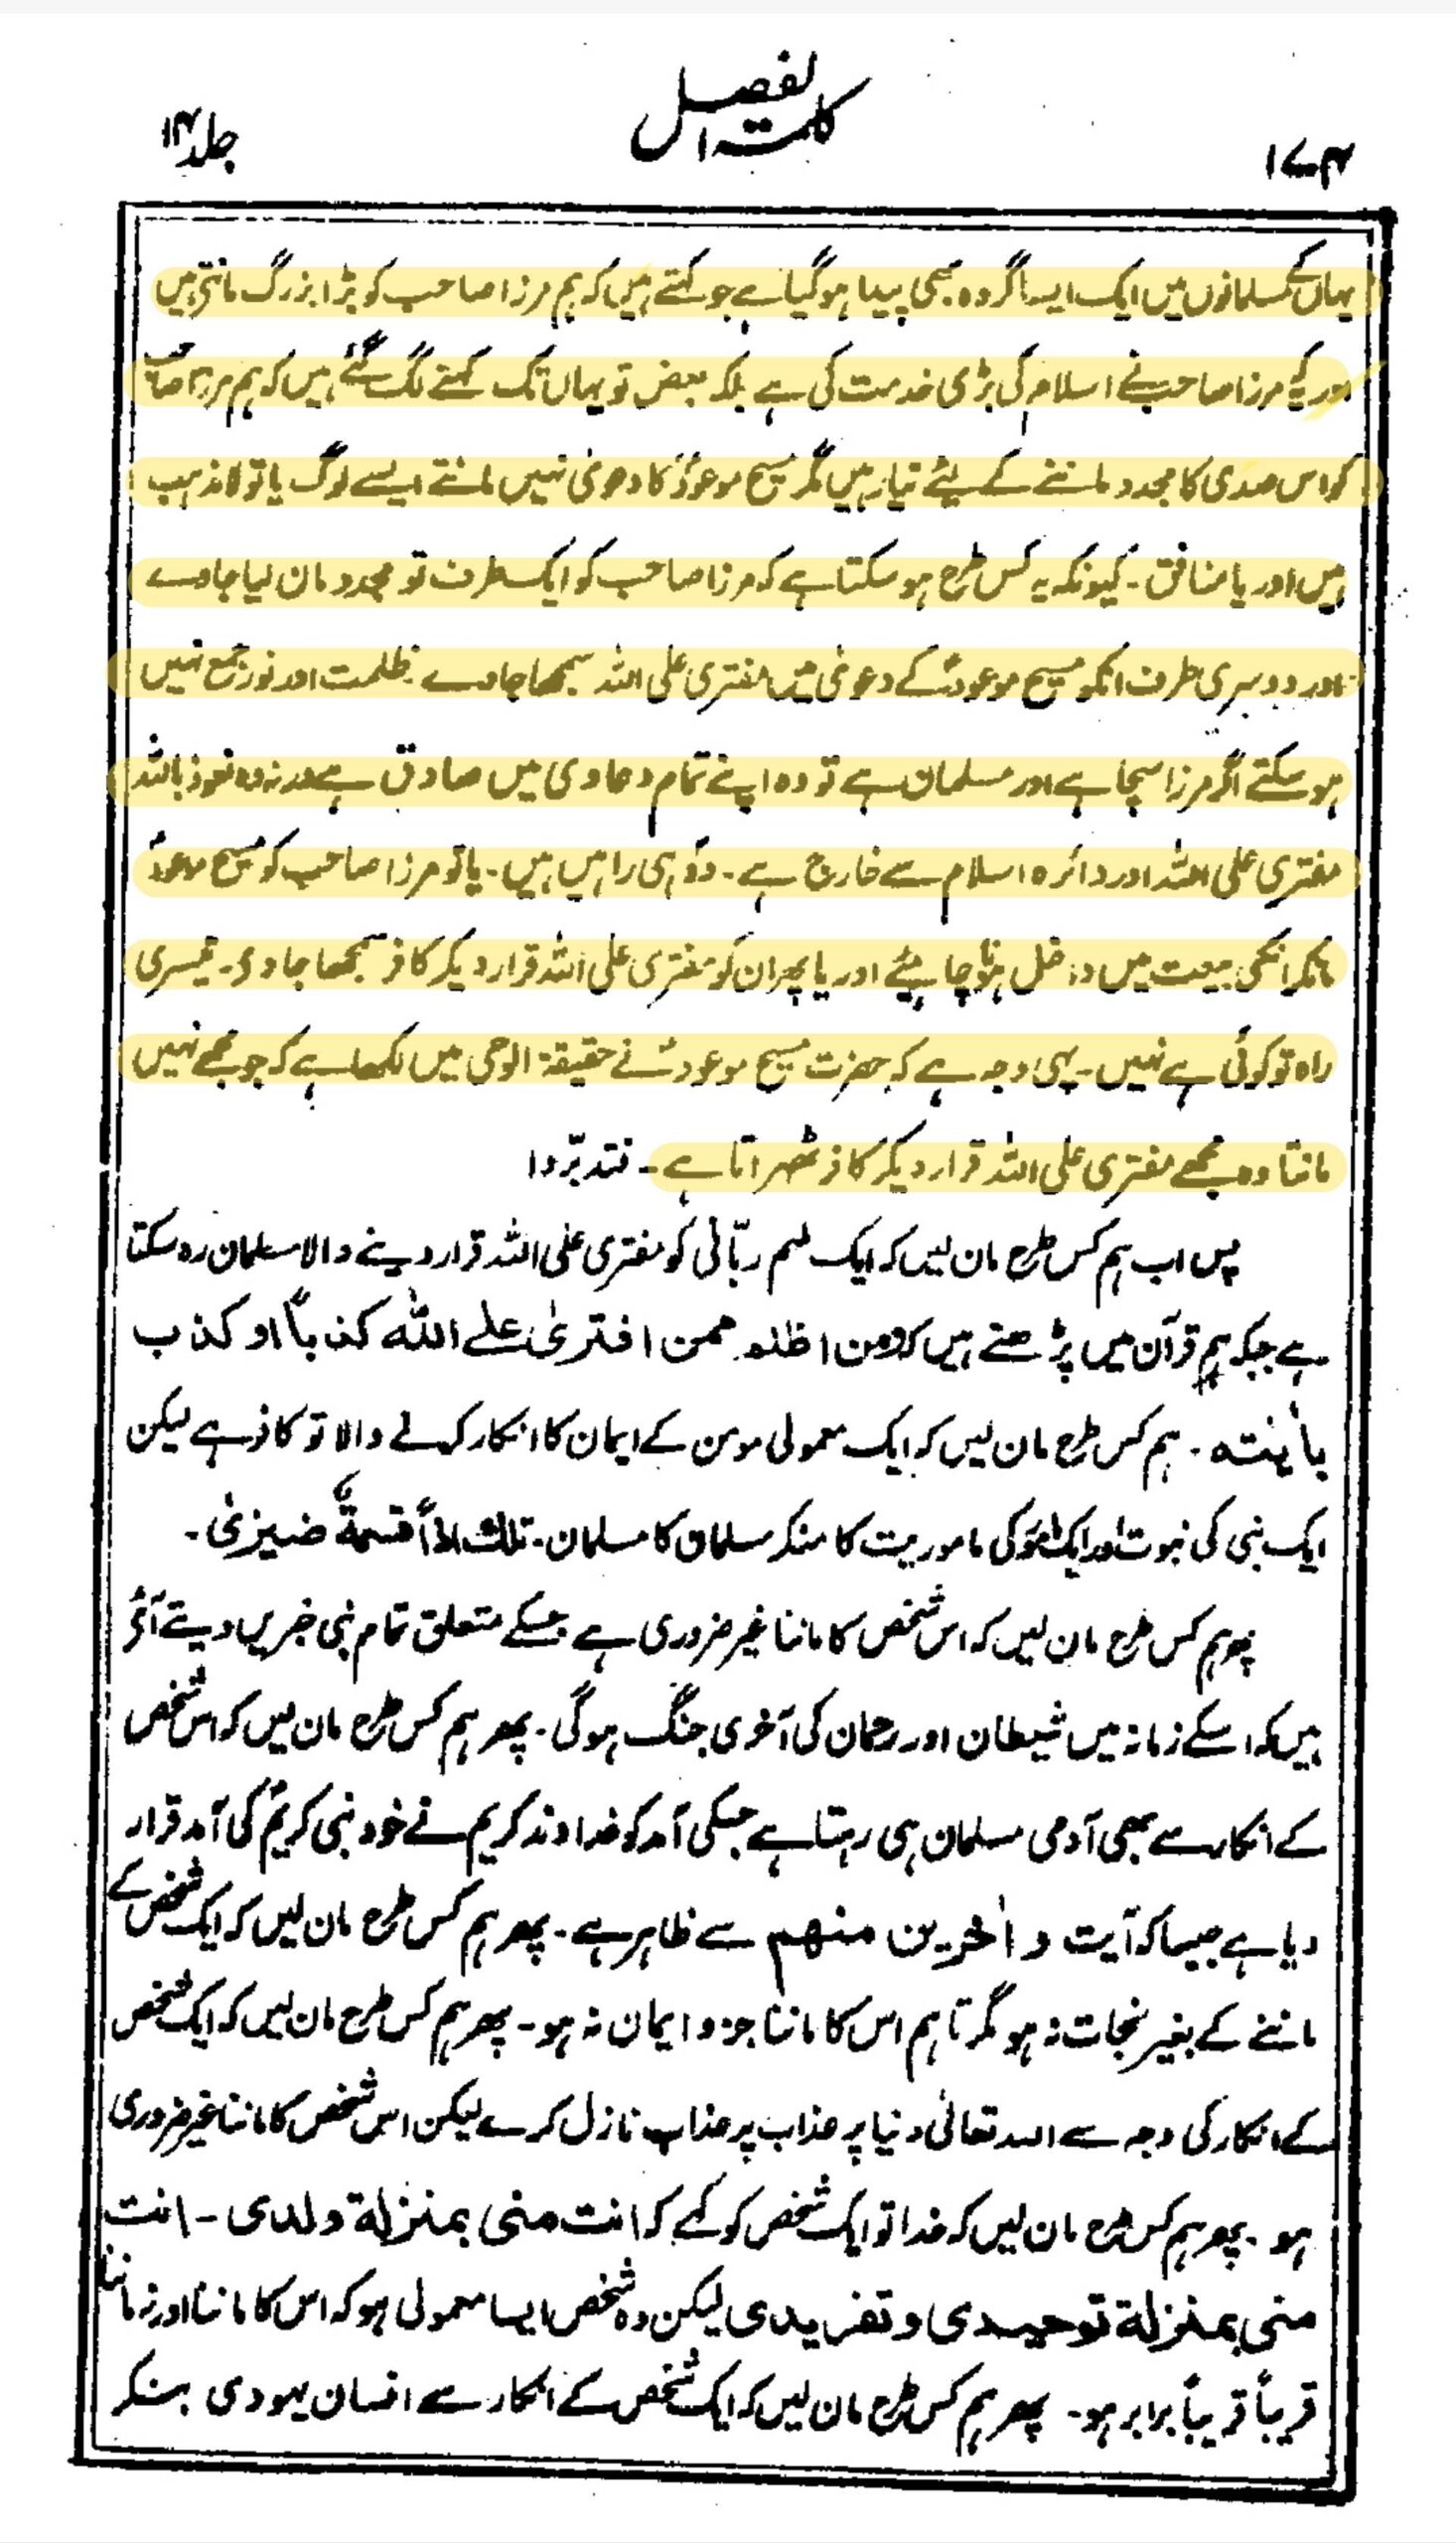 ۱۷۴
کلمۃ الفصل
جلد ۱۴
یہاں کے مسلمانوں میں ایک ایسا گروہ بھی پیدا ہو گیا ہے جو کہتے ہیں کہ ہم مرزا صاحب کو بڑا بزرگ مانتے ہیں
اور یہ کہ مرزا صاحب نے اسلام کی بڑی خدمت کی ہے بلکہ بعض تو یہاں تک کہنے لگ گئے ہیں کہ ہم مرزا صاحب
کو اس صدی کا مجدد ماننے کے لیئے تیار ہیں مگر مسیح موعودؑ کا دعویٰ نہیں مانتے ایسے لوگ یا تو لا مذہب
ہیں اور یا منافق ۔ کیونکہ یہ کس طرح ہو سکتا ہے کہ مرزا صاحب کو ایک طرف تو مجدد مان لیا جاوے
اور دوسری طرف انکو مسیح موعودؑ کے دعویٰ میں مفتری علی اللہ سمجھا جاوے ظلمت اور نور جمع نہیں
ہو سکتے اگر مرزا سچا ہے اور مسلمان ہے تو وہ اپنے تمام دعاوی میں صادق ہے ورنہ وہ نعوذ باللہ
مفتری علی اللہ اور دائرہ اسلام سے خارج ہے ۔ دو ہی راہیں ہیں ۔ یا تو مرزا صاحب کو مسیح موعودؑ
مانکر انکی بیعت میں داخل ہونا چاہیئے اور یا پھر ان کو مفتری علی اللہ قرار دیکر کافر سمجھا جاوی ۔ تیسری
راہ تو کوئی ہے نہیں ۔ یہی وجہ ہے کہ حضرت مسیح موعودؑ نے حقیقۃ الوحی میں لکھا ہے کہ جو مجھے نہیں
مانتا وہ مجھے مفتری علی اللہ قرار دیکر کافر ٹھہراتا ہے ۔ فتدبّروا
پس اب ہم کس طرح مان لیں کہ ایک ملہم ربّانی کو مفتری علی اللہ قرار دینے والا مسلمان رہ سکتا
ہے جبکہ ہم قرآن میں پڑھتے ہیں کہ ومن اظلم ممن افتریٰ علے اللہ کذباً او کذب
بأیٰتہ ۔ ہم کس طرح مان لیں کہ ایک معمولی مومن کے ایمان کا انکار کرنے والا تو کافر ہے لیکن
ایک نبی کی نبوت اور ایک مامور کی ماموریت کا منکر مسلمان کا مسلمان ۔ تلك اذاً قسمةٌ ضیزیٰ ۔
پھر ہم کس طرح مان لیں کہ اس شخص کا ماننا غیر ضروری ہے جسکے متعلق تمام نبی خبریں دیتے آئے
ہیں کہ اسکے زمانہ میں شیطان اور رحمان کی آخری جنگ ہو گی ۔ پھر ہم کس طرح مان لیں کہ اس شخص
کے انکار سے بھی آدمی مسلمان ہی رہتا ہے جسکی آمد کو خداوند کریم نے خود نبی کریمؐ کی آمد قرار
دیا ہے جیسا کہ آیت و اٰخرین منھم سے ظاہر ہے ۔ پھر ہم کس طرح مان لیں کہ ایک شخص کے
ماننے کے بغیر نجات نہ ہو مگر تا ہم اس کا ماننا جزو ایمان نہ ہو ۔ پھر ہم کس طرح مان لیں کہ ایک شخص
کے انکار کی وجہ سے اللہ تعالیٰ دنیا پر عذاب پر عذاب نازل کرے لیکن اس شخص کا ماننا غیر ضروری
ہو ۔ پھر ہم کس طرح مان لیں کہ خدا تو ایک شخص کو کہے کہ انت منی بمنزلة ولدی ۔ انت
منی بمنزلة توحیدی و تفریدی لیکن وہ شخص ایسا معمولی ہو کہ اس کا ماننا اور نہ ماننا
قریباً قریباً برابر ہو ۔ پھر ہم کس طرح مان لیں کہ ایک شخص کے انکار سے انسان یہودی بنکر